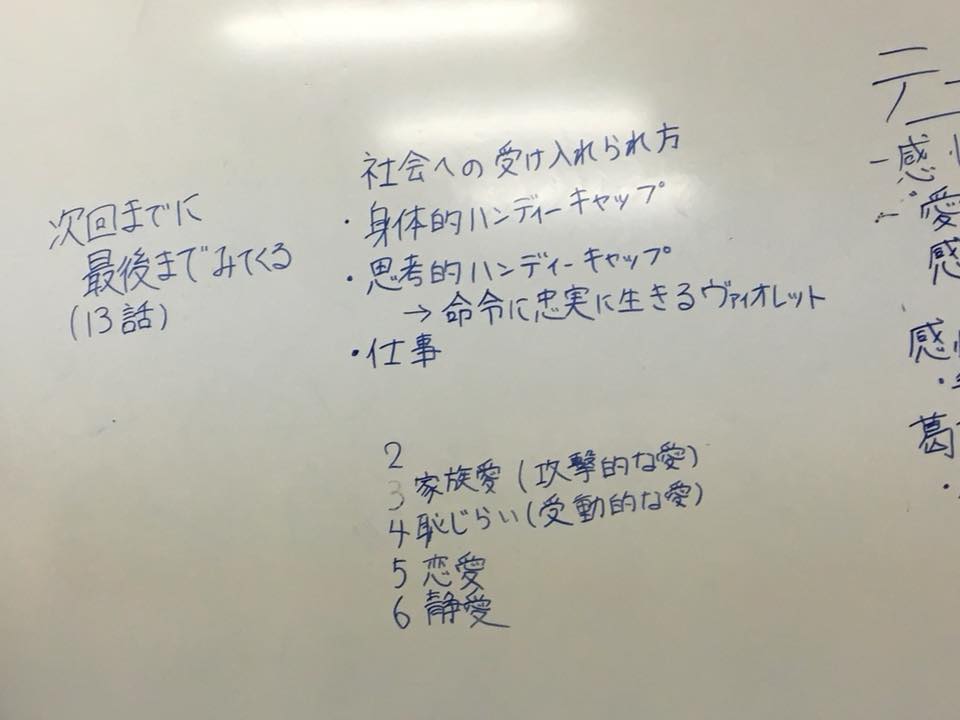 次回までに
最後までみてくる
(13話)
社会への受け入れられ方
・身体的ハンディーキャップ
・思考的ハンディーキャップ
→命令に忠実に生きるヴァイオレット
・仕事
2
3 家族愛(攻撃的な愛)
4 恥じらい(受動的な愛)
5 恋愛
6 静愛
テ
-感
愛
感
感
葛